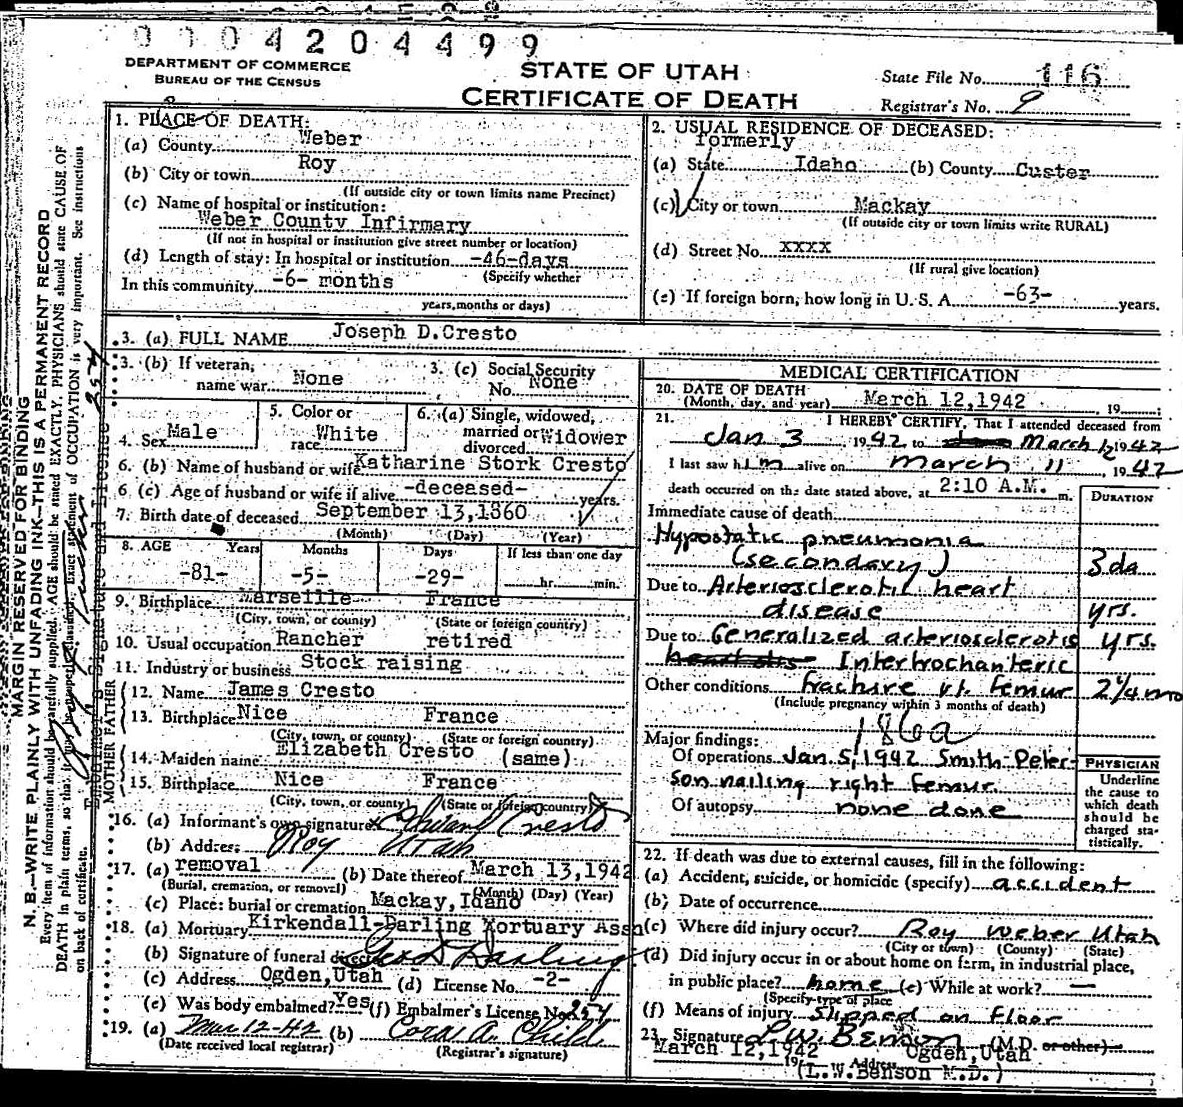 0 0 0 4 2 0 4 4 9 9
DEPARTMENT OF COMMERCE
BUREAU OF THE CENSUS
STATE OF UTAH
CERTIFICATE OF DEATH
State File No. 116
Registrar's No. 9
MARGIN RESERVED FOR BINDING
N. B.—WRITE PLAINLY WITH UNFADING INK—THIS IS A PERMANENT RECORD
Every item of information should be carefully supplied. AGE should be stated EXACTLY. PHYSICIANS should state CAUSE OF
DEATH in plain terms, so that it may be properly classified. Exact statement of OCCUPATION is very important. See instructions
on back of certificate.
1. PLACE OF DEATH:
(a) County Weber
(b) City or town Roy
(If outside city or town limits name Precinct)
(c) Name of hospital or institution:
Weber County Infirmary
(If not in hospital or institution give street number or location)
(d) Length of stay: In hospital or institution -46-days
(Specify whether
In this community -6- months
years, months or days)
2. USUAL RESIDENCE OF DECEASED:
formerly
(a) State Idaho (b) County Custer
(c) City or town Mackay
(If outside city or town limits write RURAL)
(d) Street No. xxxx
(If rural give location)
(e) If foreign born, how long in U. S. A. -63- years.
3. (a) FULL NAME Joseph D.Cresto
3. (b) If veteran, name war None
3. (c) Social Security No. None
4. Sex Male
5. Color or race White
6. (a) Single, widowed, married or divorced Widower
6. (b) Name of husband or wife Katharine Stork Cresto
6. (c) Age of husband or wife if alive -deceased- years.
7. Birth date of deceased September 13,1860
(Month) (Day) (Year)
8. AGE Years Months Days If less than one day
-81- -5- -29- hr. min.
9. Birthplace Marseille France
(City, town, or county) (State or foreign country)
10. Usual occupation Rancher retired
11. Industry or business Stock raising
FATHER
12. Name James Cresto
13. Birthplace Nice France
(City, town, or county) (State or foreign country)
MOTHER
14. Maiden name Elizabeth Cresto (same)
15. Birthplace Nice France
(City, town, or county) (State or foreign country)
16. (a) Informant's own signature Cresto
(b) Address Roy Utah
17. (a) removal (b) Date thereof March 13,1942
(Burial, cremation, or removal) (Month) (Day) (Year)
(c) Place: burial or cremation Mackay, Idaho
18. (a) Mortuary Kirkendall-Darling Mortuary Assn
(b) Signature of funeral director Geo D Darling
(c) Address Ogden,Utah (d) License No. -2-
(e) Was body embalmed? Yes (f) Embalmer's License No. 257
19. (a) Mar 12-42 (b) Cora A. Child
(Date received local registrar) (Registrar's signature)
MEDICAL CERTIFICATION
20. DATE OF DEATH March 12,1942 , 19
(Month, day, and year)
21. I HEREBY CERTIFY, That I attended deceased from
Jan 3 1942 to March 12 1942
I last saw him alive on March 11 1942
death occurred on the date stated above, at 2:10 A.M. m.
DURATION
Immediate cause of death
Hypostatic pneumonia
(secondary) 3 da
Due to Arteriosclerotic heart
disease yrs.
Due to Generalized arteriosclerotis yrs.
heart dis- Intertrochanteric
Other conditions fracture rt. femur 2 1/4 mo
(Include pregnancy within 3 months of death)
186a
Major findings:
Of operations Jan. 5, 1942 Smith-Peter-
son nailing right femur.
Of autopsy none done
PHYSICIAN
Underline
the cause to
which death
should be
charged sta-
tistically.
22. If death was due to external causes, fill in the following:
(a) Accident, suicide, or homicide (specify) accident
(b) Date of occurrence
(c) Where did injury occur? Roy Weber Utah
(City or town) (County) (State)
(d) Did injury occur in or about home on farm, in industrial place,
in public place? home (e) While at work? —
(Specify type of place
(f) Means of injury slipped on floor
23. Signature L.W. Benson (M.D. or other)
March 12,1942 19 Address Ogden,Utah
(L.W.Benson M.D.)